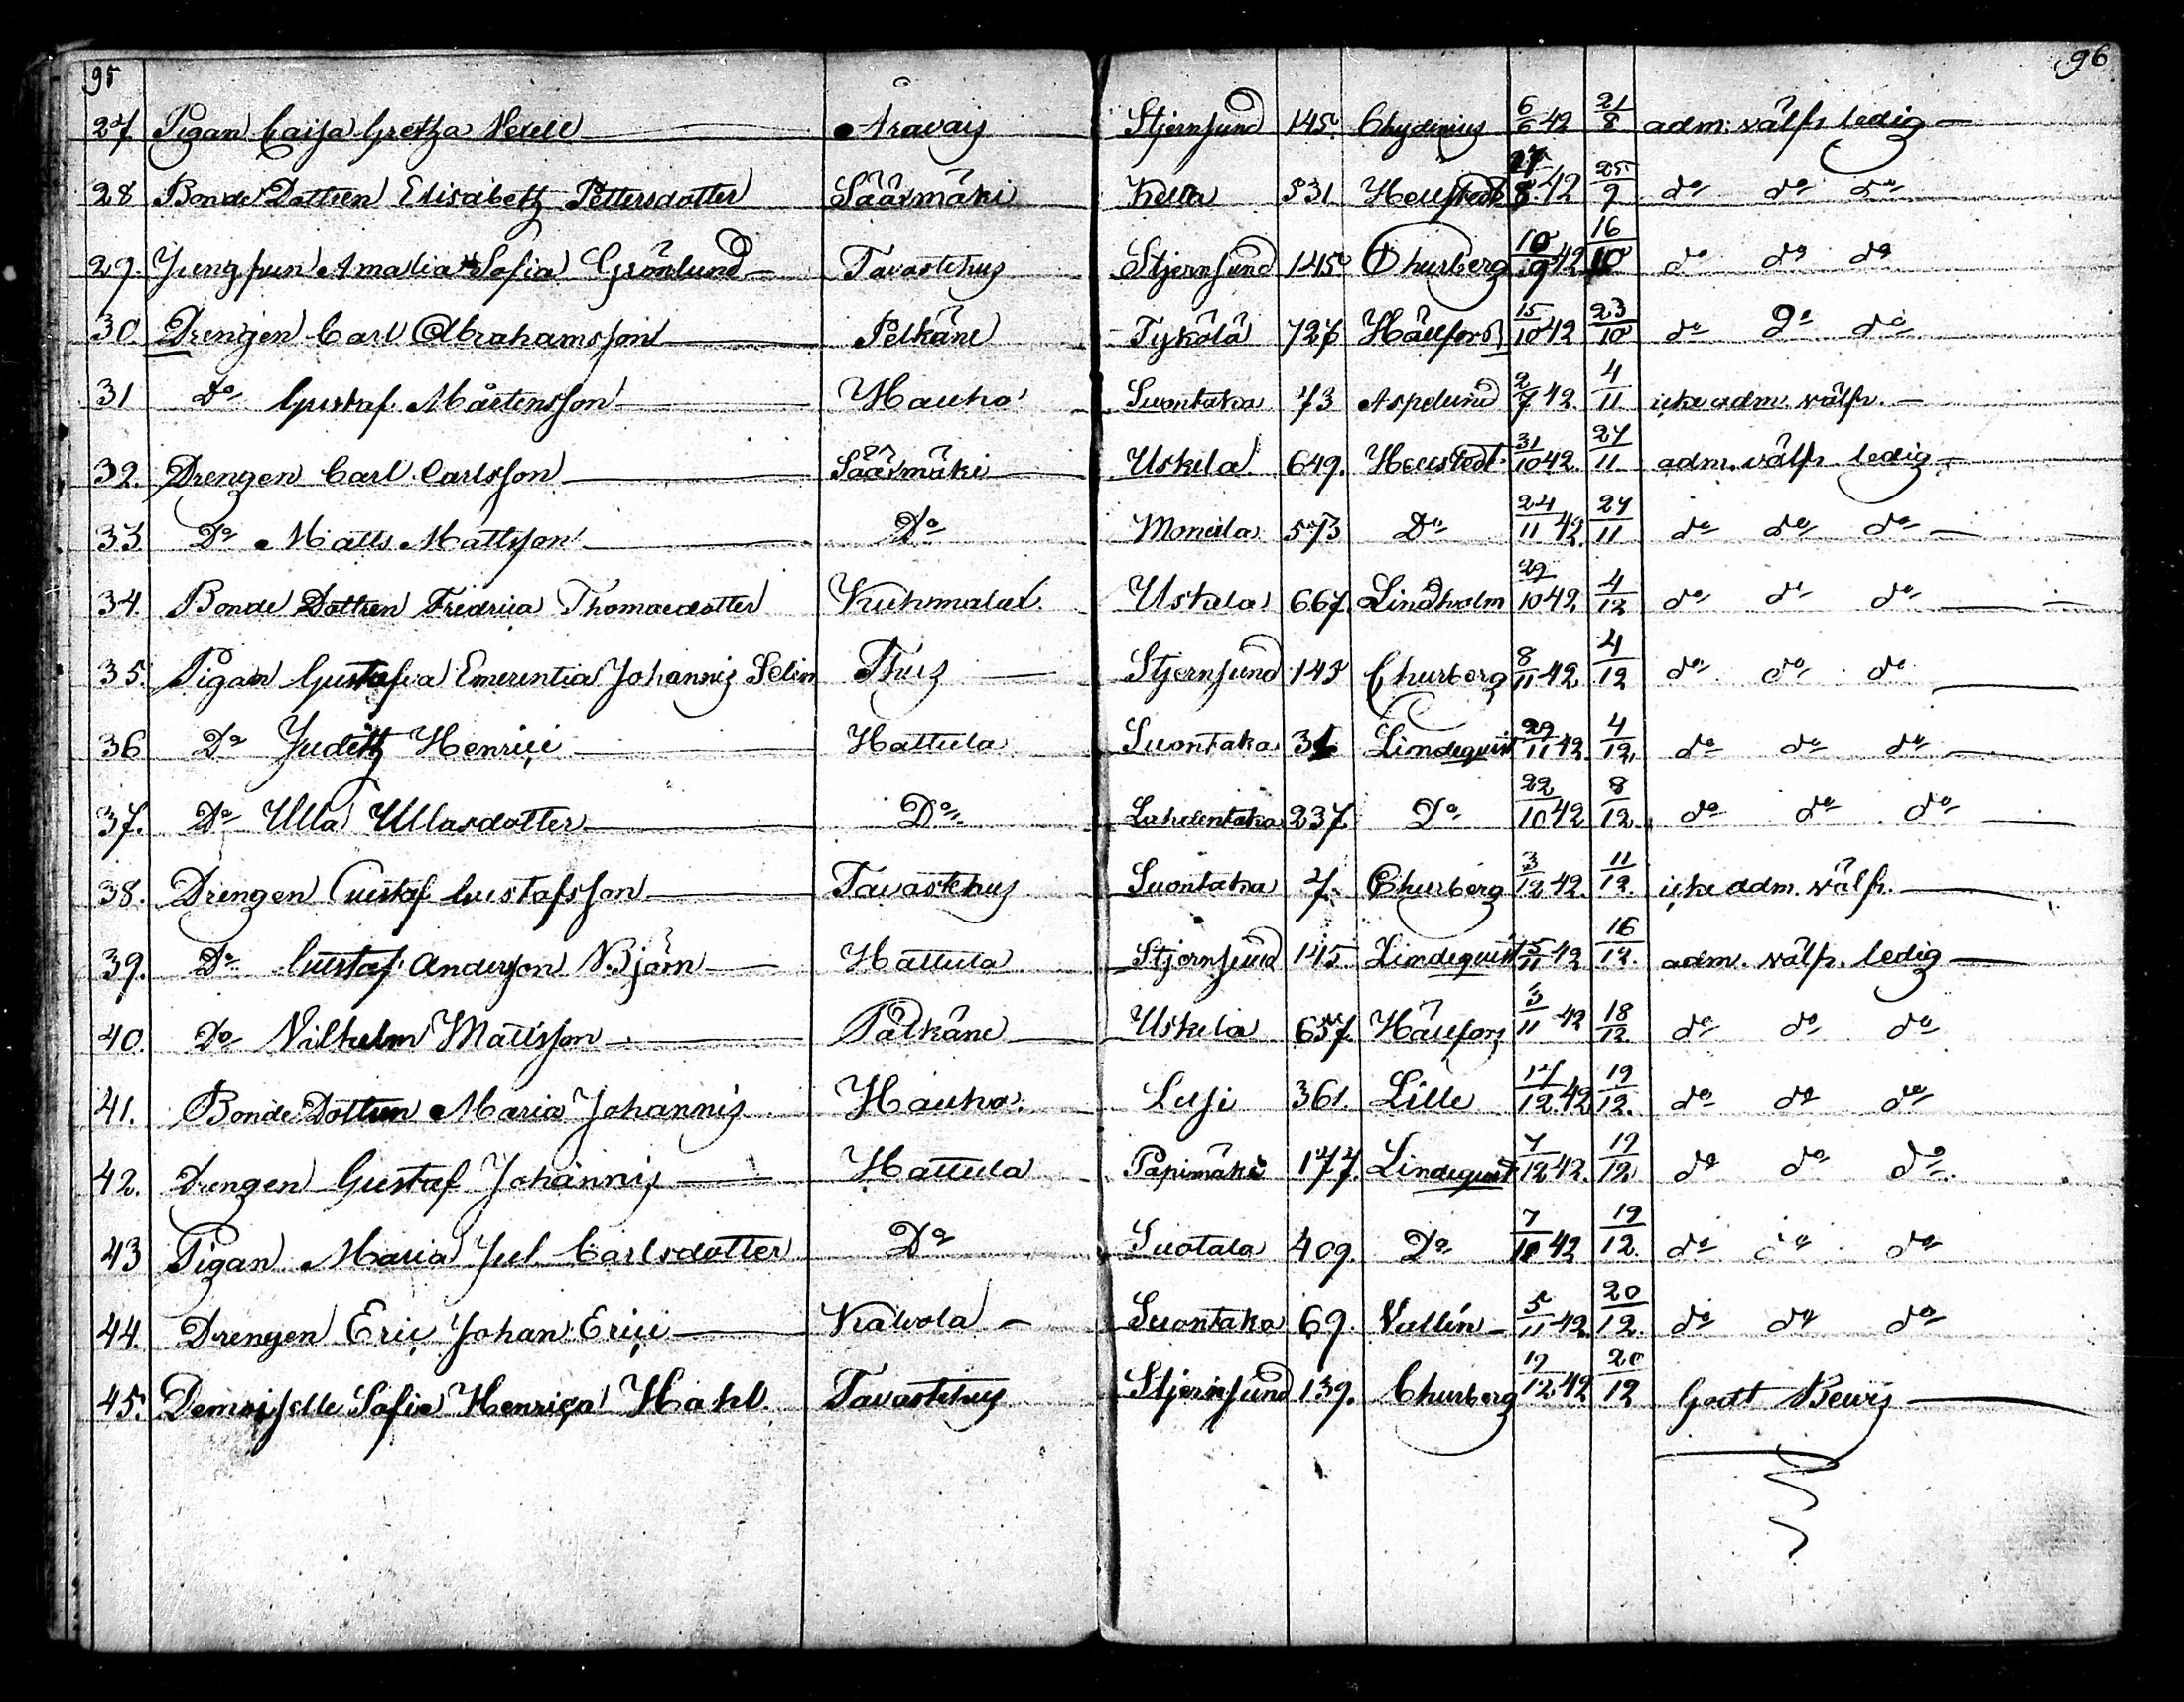 95 96
27. Pigan Caisa Gretha Stjernsund 145. Chydenius 6/6 42 21/8 adm: välfr. ledig —
28 Bonde Dottren Elisabeth Pettersdotter Säärmäki Kella 531 Hellstedt 27/8 42 25/9 do do do
29. Jungfrun Amalia Sofia Grönlund — Tavastehus Stjernsund 145 Churberg 10/9 42 16/10 do do do
30. Drengen Carl Abrahamsson — Pelkäne Tykölä 727 Hällfors 15/10 42 23/10 do do do
31 Do Gustaf Mårtensson — Hauho Suontaka 73 Aspelund 2/7 42. 4/11. icke adm. välfr. —
32. Drengen Carl Carlsson — Säärmäki — Uskela 649. Hellstedt. 31/10 42. 27/11. adm. välfr ledig —
33. Do Matts Mattsson — Do 573 Do 24/11 42. 27/11 do do do —
34. Bonde Dottren Fredrica Thomaedotter Kuhmalax. Uskela 667. Lindholm 29/10 42 4/12 do do do —
35. Pigan Gustafva Emerentia Johannis Selin Thus — Stjernsund 145 Churberg 8/11 42. 4/12 do do do —
36 Do Judith Henrici — Hattula Suontaka 31 Lindequist 29/11 42. 4/12. do do do —
37. Do Ulla Ullasdotter — Do Lahdentaka 237. Do 22/10 42 8/12. do do do —
38. Drengen Gustaf Gustafsson — Tavastehus Suontaka 7. Churberg 3/12 42. 11/12. icke adm. välfr. —
39. Do Gustaf Andersson Björn — Hattula Stjernsund 145. Lindequist 15/11 42 16/12. adm. välfr. ledig —
40. Do Vilhelm Mattsson — Pälkäne — Uskela 657. Hällfors 3/11 42 18/12. do do do
41. Bonde Dottren Maria Johannis Hauho. Lusi 361. Lille 17/12. 42 19/12. do do do
42. Drengen Gustaf Johannis — Hattula Papimäki 177. Lindequist 7/12 42. 19/12. do do do
43 Pigan Maria Jul. Carlsdotter Do Suotala 409. Do 7/10 42 19/12. do do do
44. Drengen Eric Johan Erici — Kalvola — Suontaka 69. Vallin — 5/11 42. 20/12. do do do
45. Demoiselle Sofia Henrica Hahl. Tavastehus Stjernsund 139. Churberg 19/12 42 20/12 Godt Bewis —